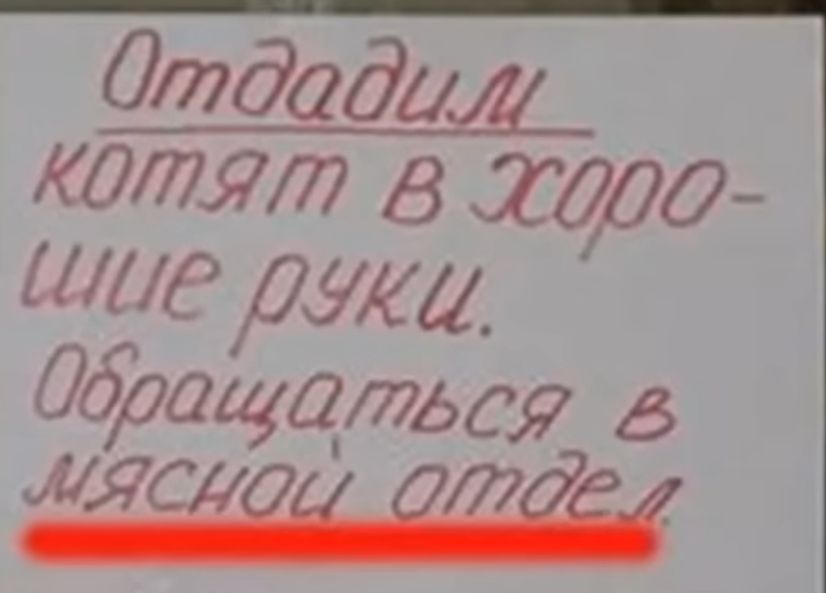 Отдадим
котят в хоро-
шие руки.
Обращаться в
мясной отдел.